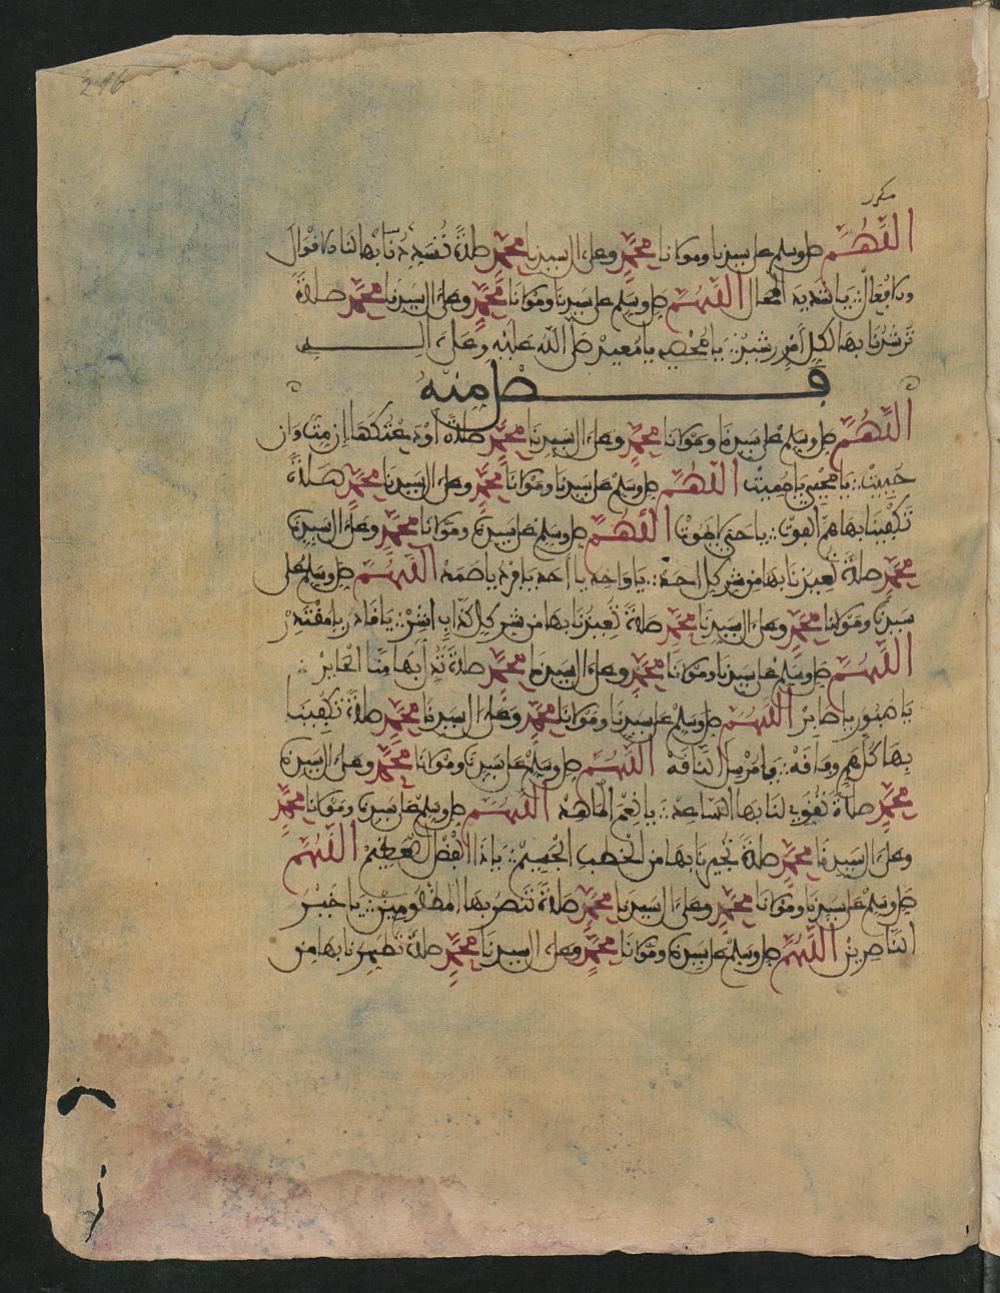 216
مكرر
اللهم صل وسلم على سيدنا ومولانا محمد وعلى ال سيدنا محمد صلاة تسدد بها لنا الاقوال
والافعال يا شديد المحال اللهم صل وسلم على سيدنا ومولانا محمد وعلى ال سيدنا محمد صلاة
ترشدنا بها لكل امر رشيد يا محصي يا معيد صلى الله عليه وعلى اله
فصل منه
اللهم صل وسلم على سيدنا ومولانا محمد وعلى ال سيدنا محمد صلاة
يا محيي يا مميت اللهم صل وسلم على سيدنا ومولانا محمد وعلى ال سيدنا محمد صلاة
تكفينا بها هم الفوت يا حي لا يموت اللهم صل وسلم على سيدنا ومولانا محمد وعلى ال سيدنا
محمد صلاة تعيذنا بها من شر كل احد يا واحد يا احد يا فرد يا صمد اللهم صل وسلم على
سيدنا ومولانا محمد وعلى ال سيدنا محمد صلاة تعيذنا بها من شر كل كذاب اشر يا قادر يا مقتدر
اللهم صل وسلم على سيدنا ومولانا محمد وعلى ال سيدنا محمد صلاة بها منا الحاير
يا صبور يا صابر اللهم صل وسلم على سيدنا ومولانا محمد وعلى ال سيدنا محمد صلاة تكفينا
بها كل هم وفاقة يا مرسل الناقة اللهم صل وسلم على سيدنا ومولانا محمد وعلى ال سيدنا
محمد صلاة تقوي لنا بها يا نعم اللهم صل وسلم على سيدنا ومولانا محمد
وعلى ال سيدنا محمد صلاة تجيرنا بها من الخطب الجسيم يا ذا الفضل العظيم اللهم
صل وسلم على سيدنا ومولانا محمد وعلى ال سيدنا محمد صلاة تنصر بها المظلومين يا خير
الناصرين اللهم صل وسلم على سيدنا ومولانا محمد وعلى ال سيدنا محمد صلاة تطهرنا بها من